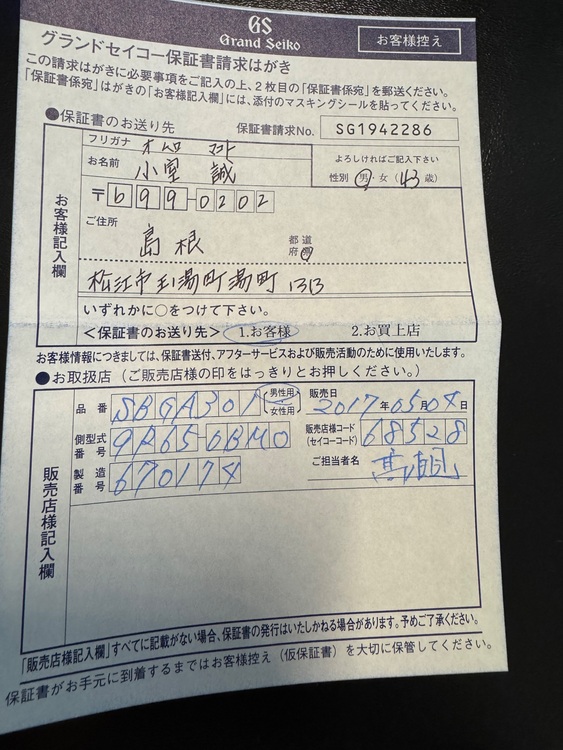 GS
Grand Seiko
お客様控え
グランドセイコー保証書請求はがき
この請求はがきに必要事項をご記入の上、2枚目の「保証書係宛」を郵送ください。
「保証書係宛」はがきの「お客様記入欄」には、添付のマスキングシールを貼ってください。
●保証書のお送り先
保証書請求No. SG1942286
フリガナ オムロ マコト
お名前 小室 誠
よろしければご記入下さい
性別 男・女 (43歳)
お客様記入欄
〒699-0202
ご住所
島根 都道府県
松江市玉湯町湯町
いずれかに○をつけて下さい。
<保証書のお送り先> 1.お客様 2.お買上店
お客様情報につきましては、保証書送付、アフターサービスおよび販売活動のために使用いたします。
●お取扱店(ご販売店様の印をはっきりとお押しください。)
販売店様記入欄
品番 SBGA301 男性用 女性用
販売日 2017年05月04日
側型式番号 9R65-0BM0
販売店様コード(セイコーコード) 68528
製造番号 670174
ご担当者名
「販売店様記入欄」すべてに記載がない場合、保証書の発行はいたしかねる場合があります。予めご了承ください。
保証書がお手元に到着するまではお客様控え(仮保証書)を大切に保管してください。